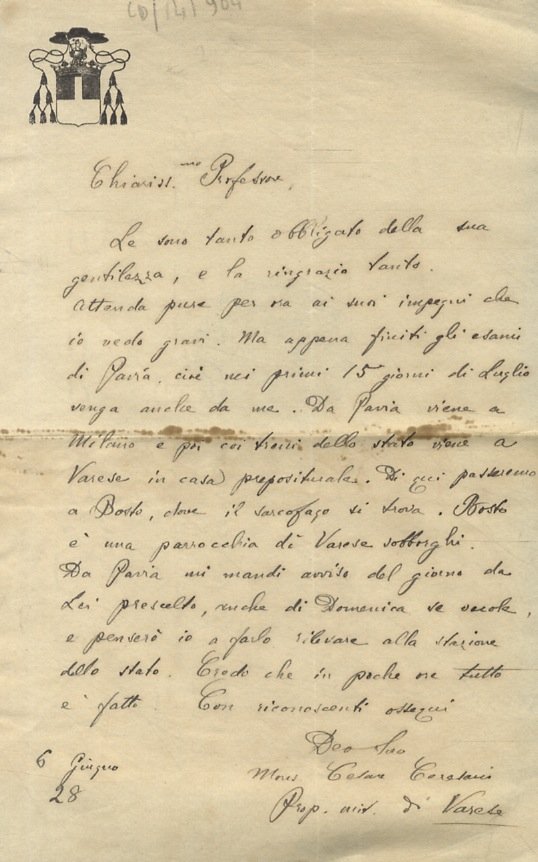 CD/14/904
Chiariss.mo Professore,
Le sono tanto obbligato della sua
gentilezza, e la ringrazio tanto.
Attenda pure per ora ai suoi impegni che
io vedo gravi. Ma appena finiti gli esami
di Pavia, cioè nei primi 15 giorni di Luglio
venga anche da me. Da Pavia viene a
Milano e poi coi treni dello stato viene a
Varese in casa prepositurale. Di qui passeremo
a Bosto, dove il sarcofago si trova. Bosto
è una parrocchia di Varese sobborghi.
Da Pavia mi mandi avviso del giorno da
Lei prescelto, anche di Domenica se vuole,
e penserò io a farlo rilevare alla stazione
dello stato. Credo che in poche ore tutto
è fatto. Con riconoscenti ossequi
Dev. Suo
6 Giugno
28
Mons Cesare
Prop. mit. di Varese